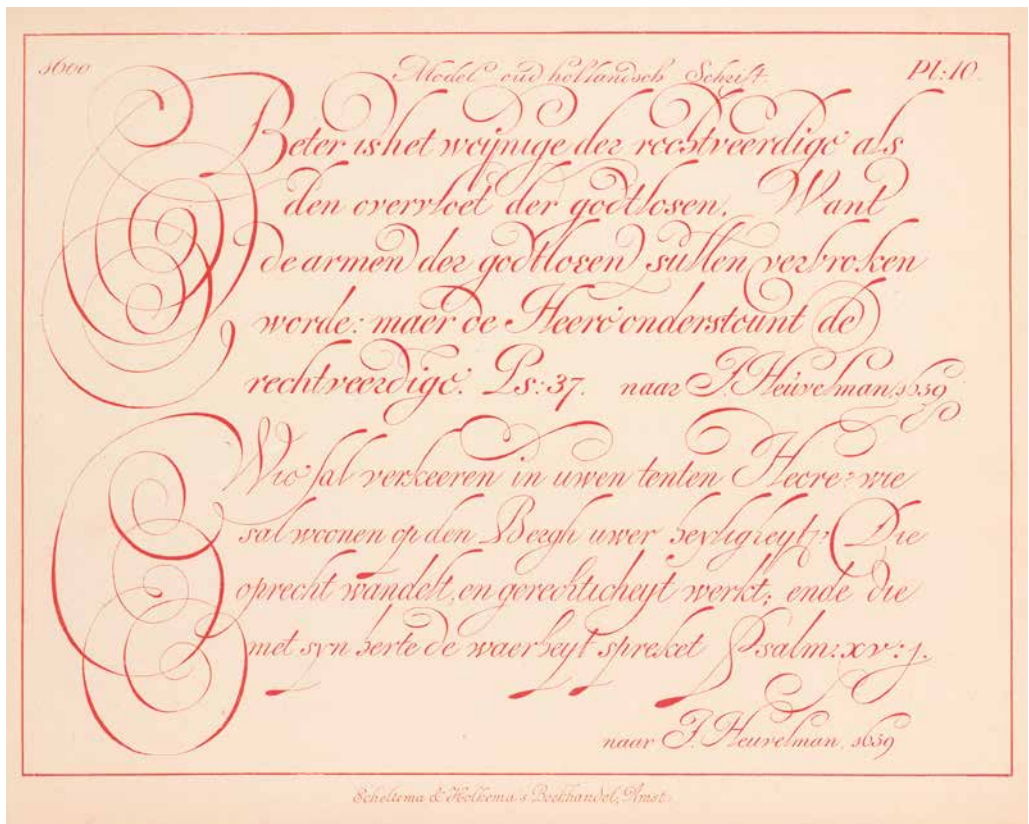 1600 Model oud hollandsch Schrift. Pl: 10.
Beter is het weijnige der rechtveerdige als
den overvloet der godtlosen. Want
de armen der godtlosen sullen verbroken
worde: maer de Heere onderstount de
rechtveerdige. Ps: 37. naar J. Heuvelman, 1659
Wie sal verkeeren in uwen tenten Heere: wie
sal woonen op den Bergh uwer heyligheyt? Die
oprecht wandelt, en gerechticheyt werkt; ende die
met syn herte de waerheyt spreket Psalm: xv: j.
naar J. Heuvelman, 1659
Scheltema & Holkema's Boekhandel, Amst.